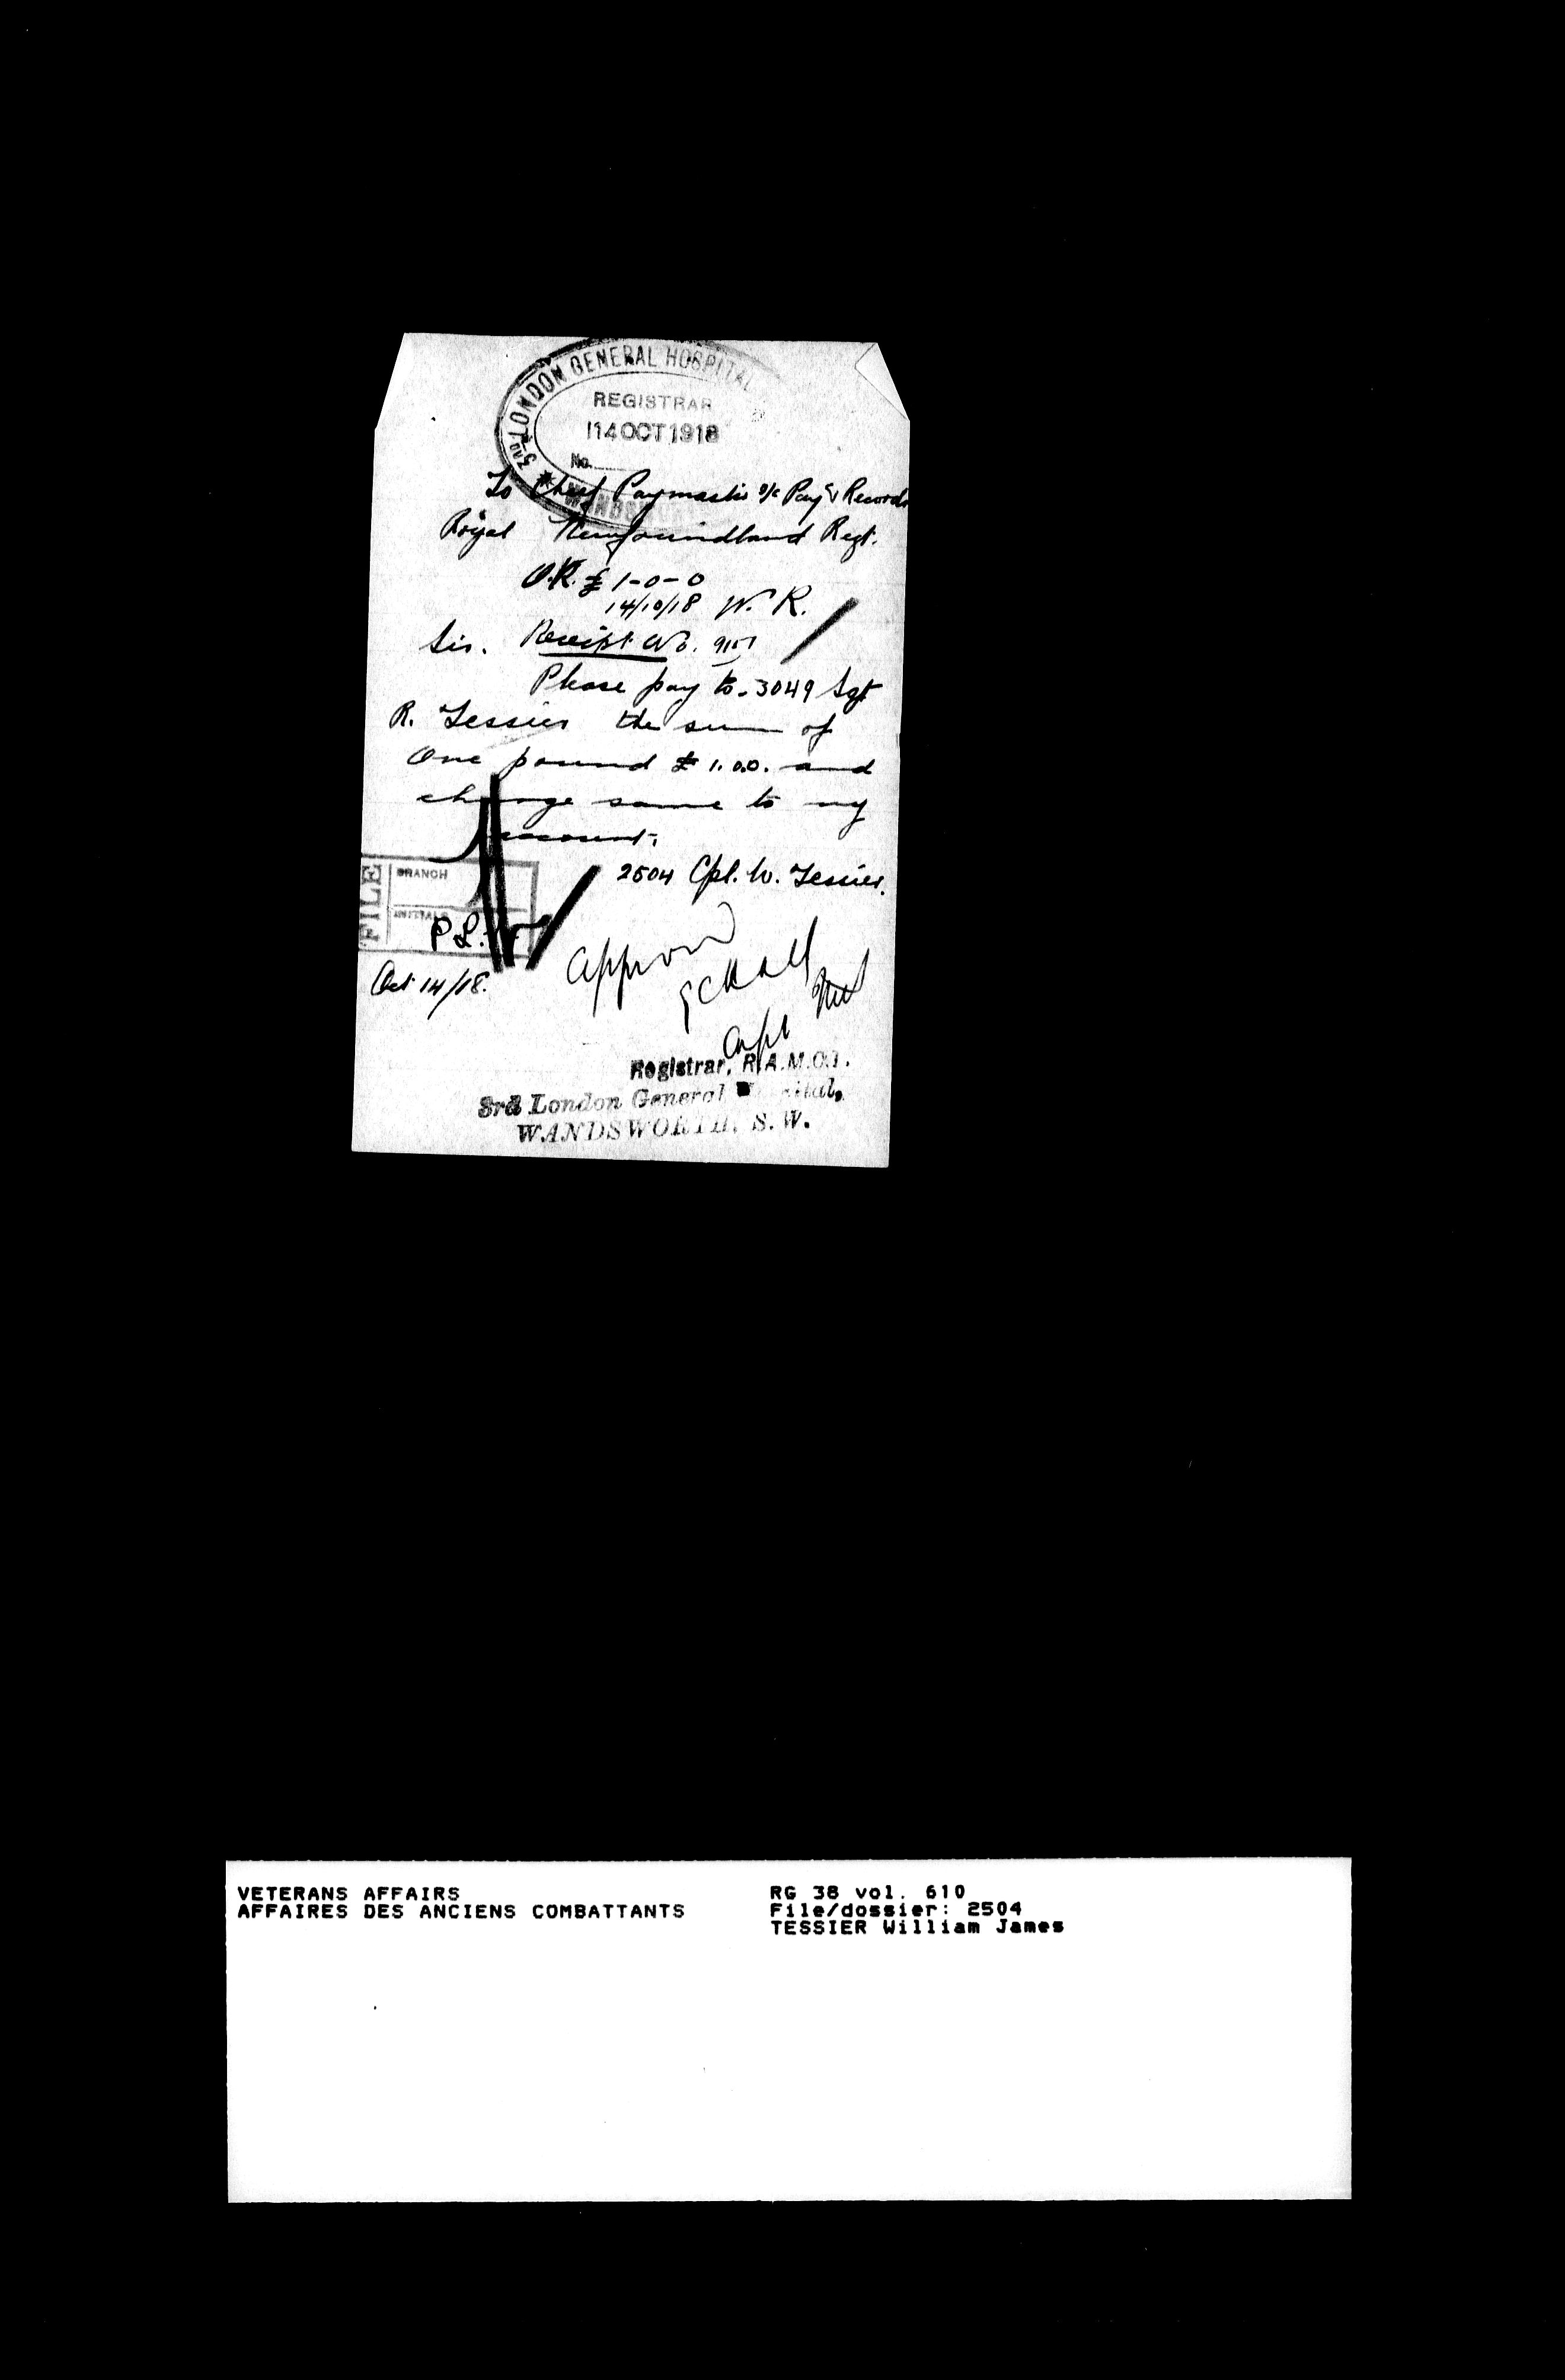 3RD LONDON GENERAL HOSPITAL
REGISTRAR
14 OCT 1918
No.
WANDSWORTH
To Chief Paymaster o/c Pay & Records
Royal Newfoundland Regt.
O.K. £ 1-0-0
14/10/18 W. R.
Sir. Receipt No.
Please pay to 3049 Sgt
R. Tessier the sum of
One pound £ 1.0.0. and
charge same to my
account.
2504 Cpl. W. Tessier.
FILE
BRANCH
INITIALS
P.L.
Oct 14/18.
Approved
Capt
Registrar, R.A.M.C.T.
3rd London General Hospital,
WANDSWORTH. S.W.
VETERANS AFFAIRS
AFFAIRES DES ANCIENS COMBATTANTS
RG 38 vol. 610
File/dossier: 2504
TESSIER William James